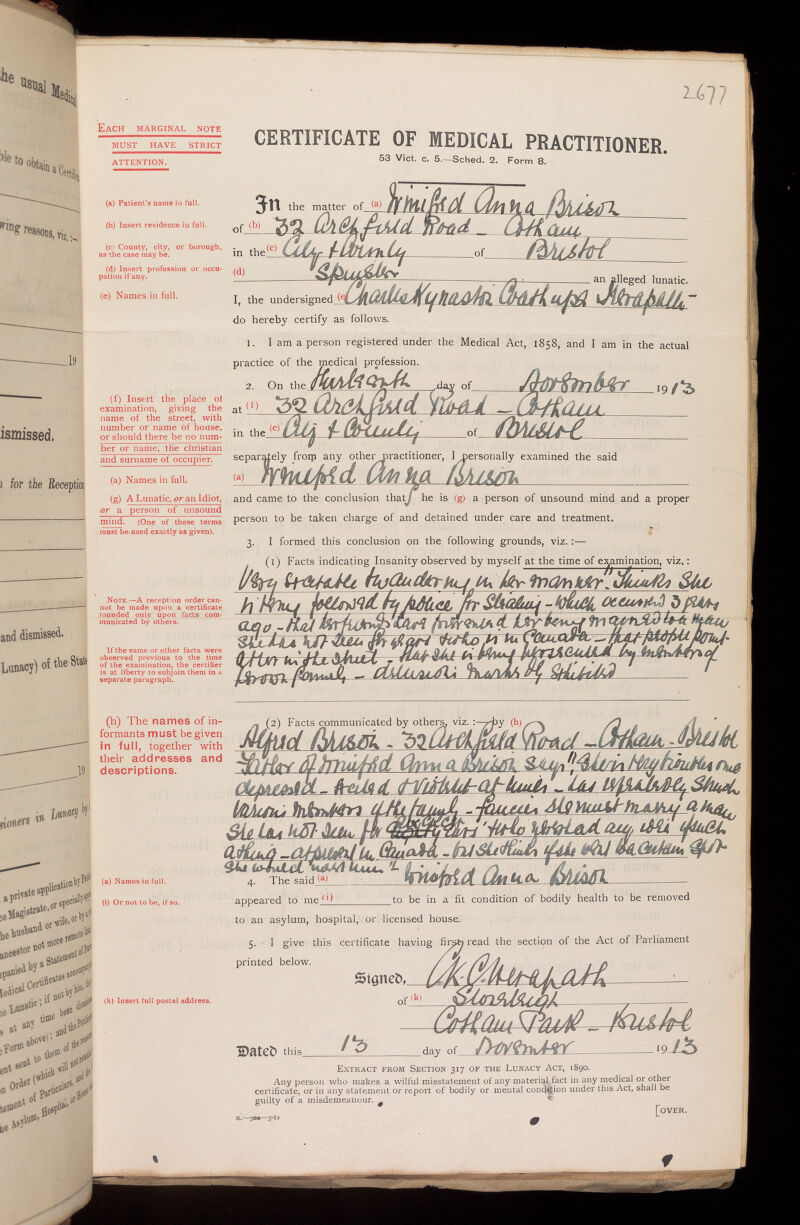 2677
he usual Medical
ble to obtain a Certific
wing reasons, viz.:—
19
ismissed.
n for the Reception
and dismissed.
Lunacy) of the State
19
sioners in Lunacy by
EACH MARGINAL NOTE
MUST HAVE STRICT
ATTENTION.
CERTIFICATE OF MEDICAL PRACTITIONER.
53 Vict. c. 5.—Sched. 2. Form 8.
(a) Patient's name in full.
In the matter of (a) Winifred Anna Brison
(b) Insert residence in full.
of (b) 32 Archfield Road - Cotham
(c) County, city, or borough,
as the case may be.
in the (c) City & County of Bristol
(d) Insert profession or occu-
pation if any.
(d) Spinster an alleged lunatic.
(e) Names in full.
I, the undersigned (e) Charles Kynaston Coathupe Herapath
do hereby certify as follows.
1. I am a person registered under the Medical Act, 1858, and I am in the actual
practice of the medical profession.
2. On the thirteenth day of November 1913
(f) Insert the place of
examination, giving the
name of the street, with
number or name of house,
or should there be no num-
ber or name, the christian
and surname of occupier.
at (f) 32 Archfield Road - Cotham
in the (c) City & County of Bristol
separately from any other practitioner, I personally examined the said
(a) Names in full.
(a) Winifred Anna Brison
(g) A Lunatic, or an Idiot,
or a person of unsound
mind. (One of these terms
must be used exactly as given).
and came to the conclusion that s he is (g) a person of unsound mind and a proper
person to be taken charge of and detained under care and treatment.
3. I formed this conclusion on the following grounds, viz. :—
(1) Facts indicating Insanity observed by myself at the time of examination, viz.:
NOTE.—A reception order can-
not be made upon a certificate
founded only upon facts com-
municated by others.
If the same or other facts were
observed previous to the time
of the examination, the certifier
is at liberty to subjoin them in a
separate paragraph.
Very excitable & wandering in her manner. Thinks she
is being followed by police for stealing - which occurred 3 years
ago - that her have prevented her being married to a man
she has not seen for years & who is in Canada - that people point
at her in the street - that she is being persecuted by members of
her own family - delusions exhibited
(h) The names of in-
formants must be given
in full, together with
their addresses and
descriptions.
(2) Facts communicated by others, viz. :—by (h)
Alfred Brison - 32 Archfield Road - Cotham - Bristol
of Winifred Anna Brison says "She is very &
depressed - excited & violent at times - has repeatedly struck
various members of the family - fancies she must marry a man
she has not seen for years & who never had any idea of such
a thing - at present in Canada - but she thinks if she went to a certain spot
she would meet him"
(a) Names in full.
4. The said (a) Winifred Anna Brison
(i) Or not to be, if so.
appeared to me (i) to be in a fit condition of bodily health to be removed
to an asylum, hospital, or licensed house.
5. I give this certificate having first read the section of the Act of Parliament
printed below.
Signed, C.K.C. Herapath
(k) Insert full postal address.
of (k) Stoneleigh
Cotham Park - Bristol
Dated this 13 day of November 1913
EXTRACT FROM SECTION 317 OF THE LUNACY ACT, 1890.
Any person who makes a wilful misstatement of any material fact in any medical or other
certificate, or in any statement or report of bodily or mental condition under this Act, shall be
guilty of a misdemeanour.
S.—300—3-12
[OVER.